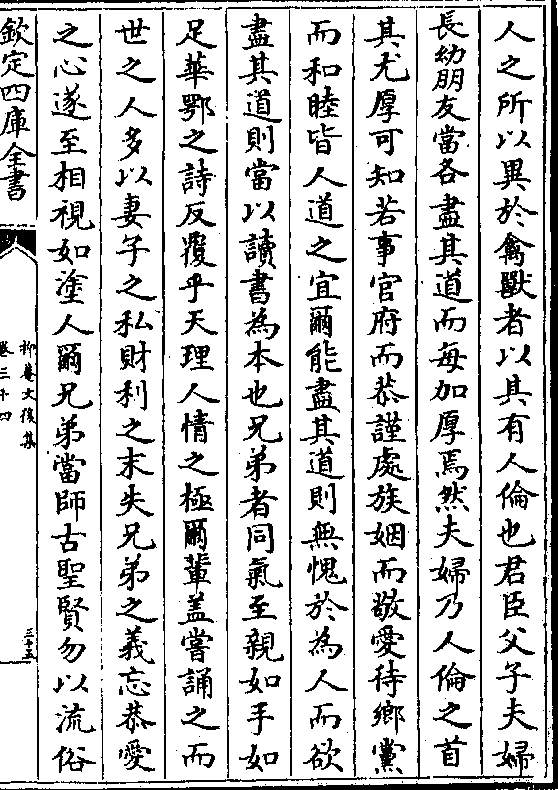 人之所以異於禽獸者以其有人倫也君臣父子夫婦
長幼朋友當各盡其道而每加厚焉然夫婦乃人倫之首
其尤厚可知若事官府而恭謹處族姻而敬愛待鄉黨
而和睦皆人道之宜爾能盡其道則無愧於為人而欲
盡其道則當以讀書為本也兄弟者同氣至親如手如
足華鄂之詩反覆乎天理人情之極爾輩盖嘗誦之而
世之人多以妻子之私財利之末失兄弟之義忘恭愛
之心遂至相視如塗人爾兄弟當師古聖賢勿以流俗
欽定四庫全書
柳菴文後集
卷三十四
三十五